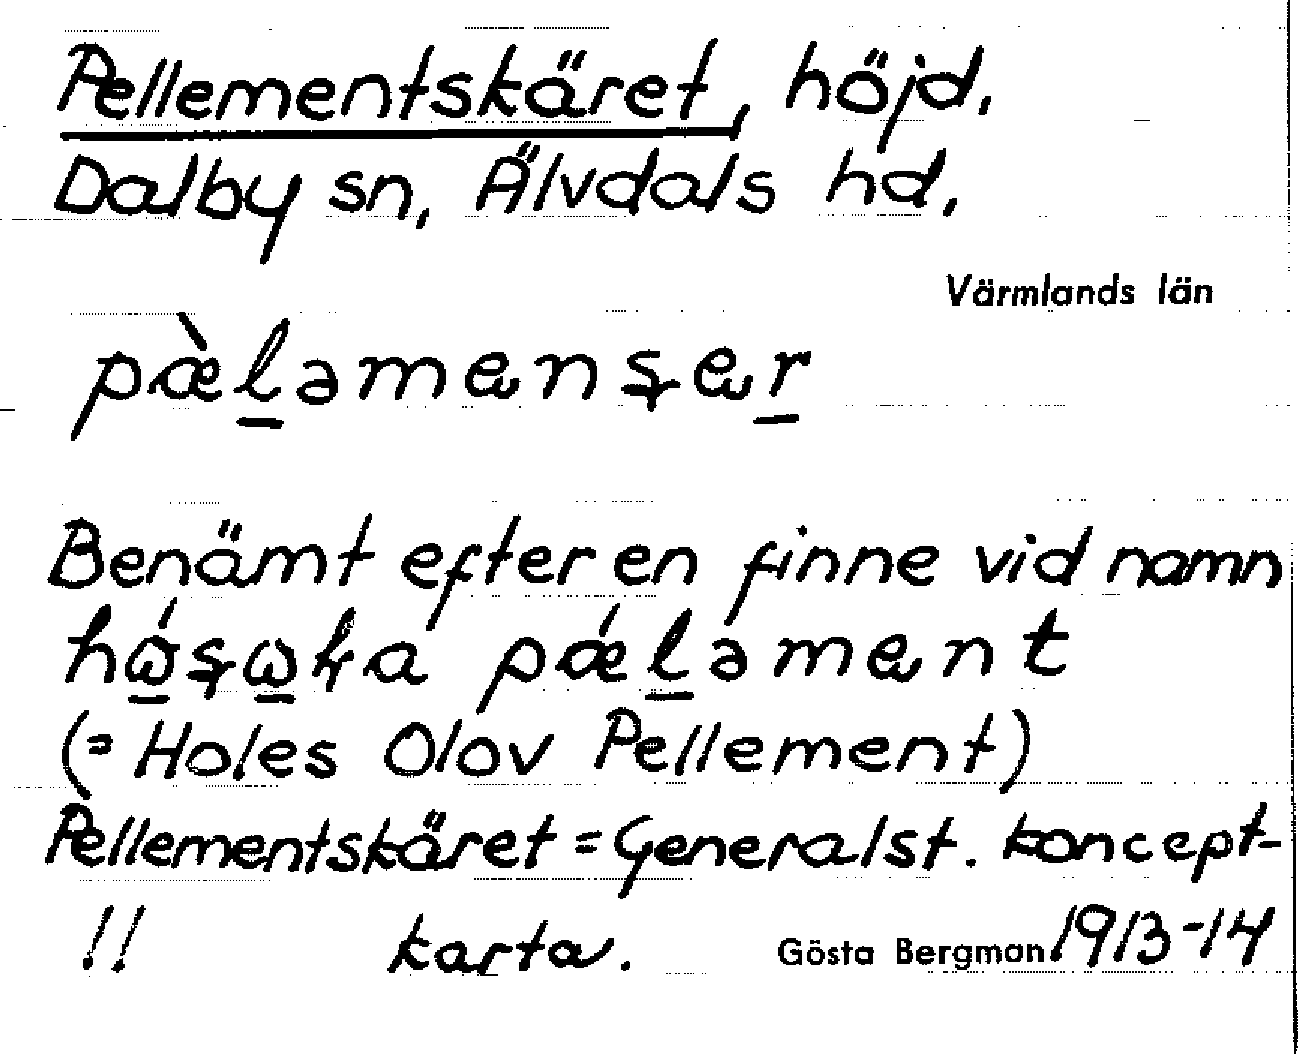 Pellementskäret, höjd.
Dalby sn, Älvdals hd,
Värmlands län
Benämt efter en finne vid namn
(= Holes Olov Pellement)
Pellementskäret = Generalst. koncept-
!! karta. Gösta Bergman 1913-14